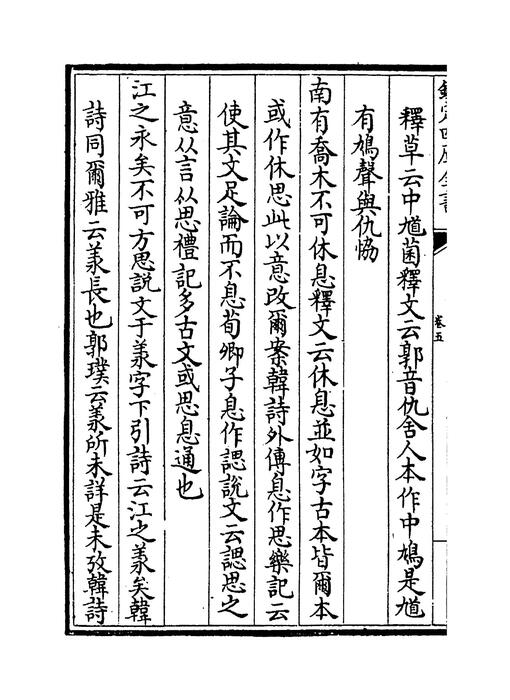 欽定四庫全書
卷五
釋草云中馗菌釋文云郭音仇舍人本作中鳩是馗
有鳩聲與仇恊
南有喬木不可休息釋文云休息並如字古本皆爾本
或作休思此以意改爾案韓詩外傳息作思樂記云
使其文足論而不息荀卿子息作諰說文云諰思之
意从言从思禮記多古文或思息通也
江之永矣不可方思說文于羕字下引詩云江之羕矣韓
詩同爾雅云羕長也郭璞云羕所未詳是未攷韓詩